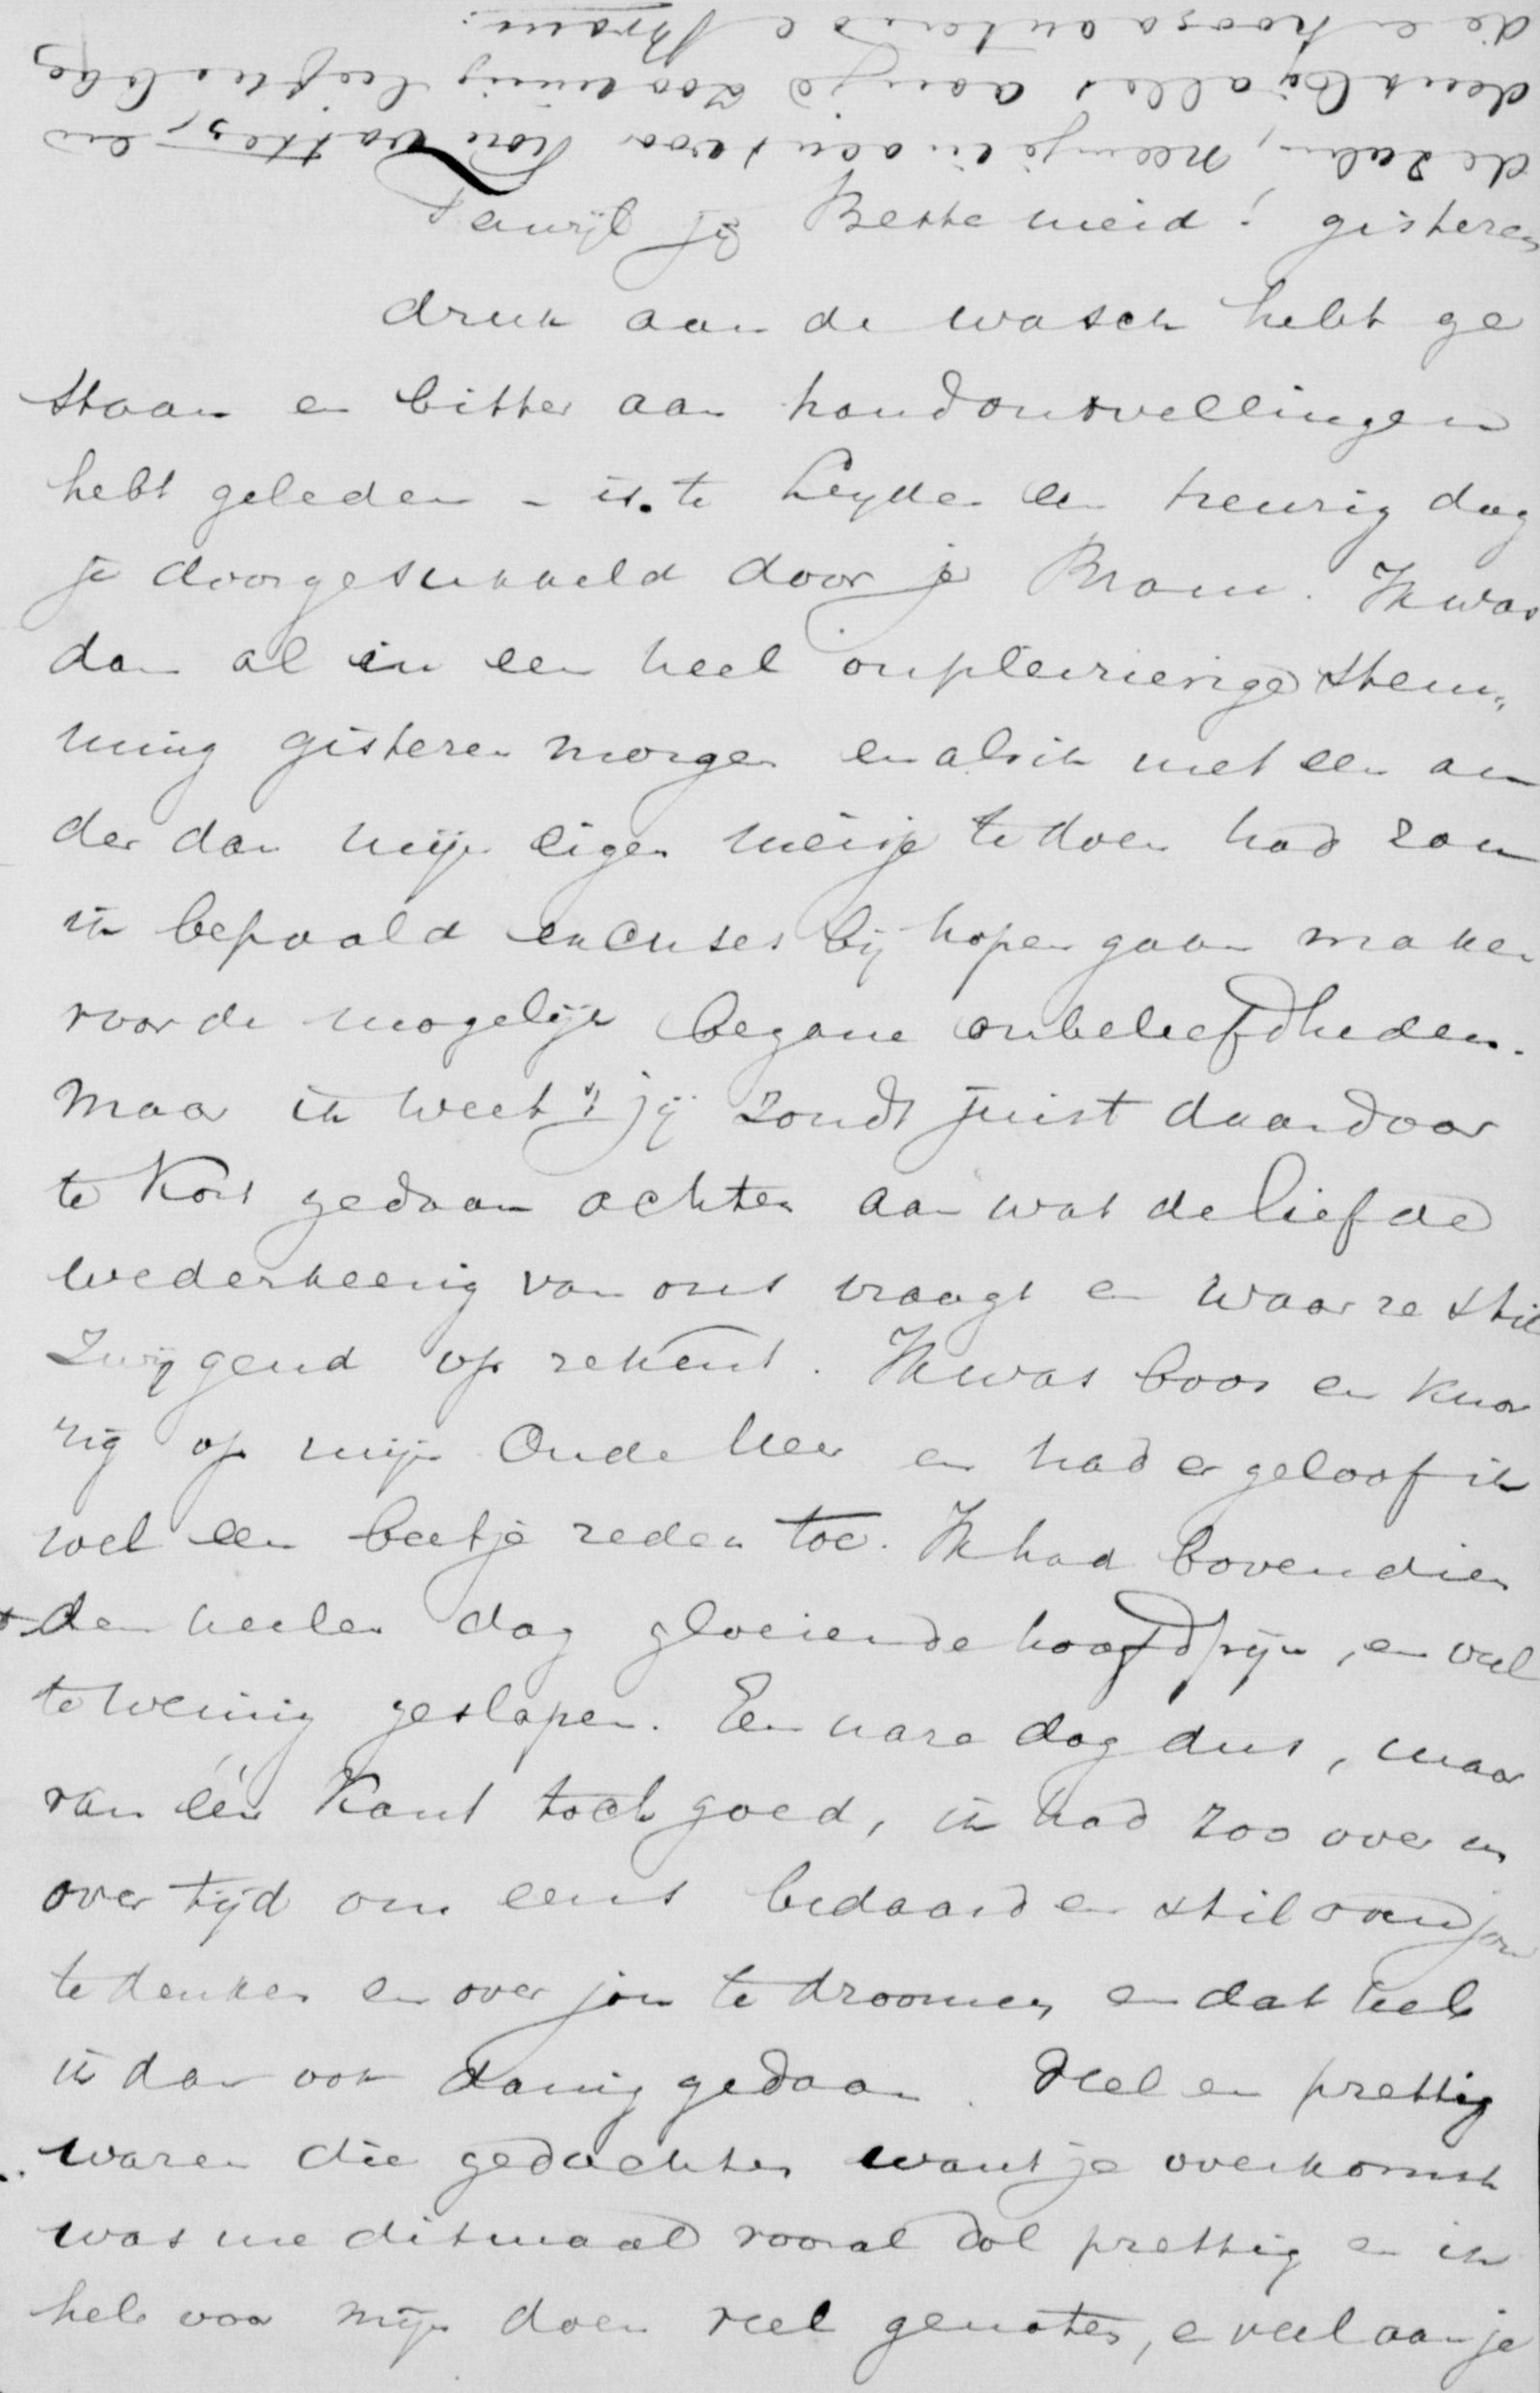 de zalen, neem je in acht voor Kou vatten, en
denk bij alles aan je zoo innig liefhebbe
de en
Terwijl jij Beste meid! gisteren
druk aan de wasch hebt ge
staan en bitter aan handontvellingen
hebt geleden – is te Leyden een treurig dag
je doorgesukkeld door je Bram. Ik was
dan al in een heel onpleizierige stem„
ming gisteren morgen en als ik met een an
der dan mijn eigen meisje te doen had zou
ik bepaald excuses bij hopen gaan maken
voor de mogelijk begane onbeleefdheden.
Maar ik weet 't jij zoudt juist daardoor
te Kort gedaan achten aan wat de liefde
wederkeerig van ons vraagt en waar ze stil
zwijgend op rekent. Ik was boos en knor
rig op mijn Oude heer en had er geloof ik
wel een beetje reden toe. Ik had bovendien
den heelen dag gloeiende hoofdpijn, en veel
te weinig geslapen. Een nare dag dus, maar
van één Kant toch goed, ik had zoo over en
over tijd om eens bedaard en stil aan jou
te denken en over jou te droomen en dat heb
ik dan ook danig gedaan. Heel en prettig
waren die gedachten want je overkomst
was me ditmaal vooral dol prettig en ik
heb voor mijn doen veel genoten, en veel aan je